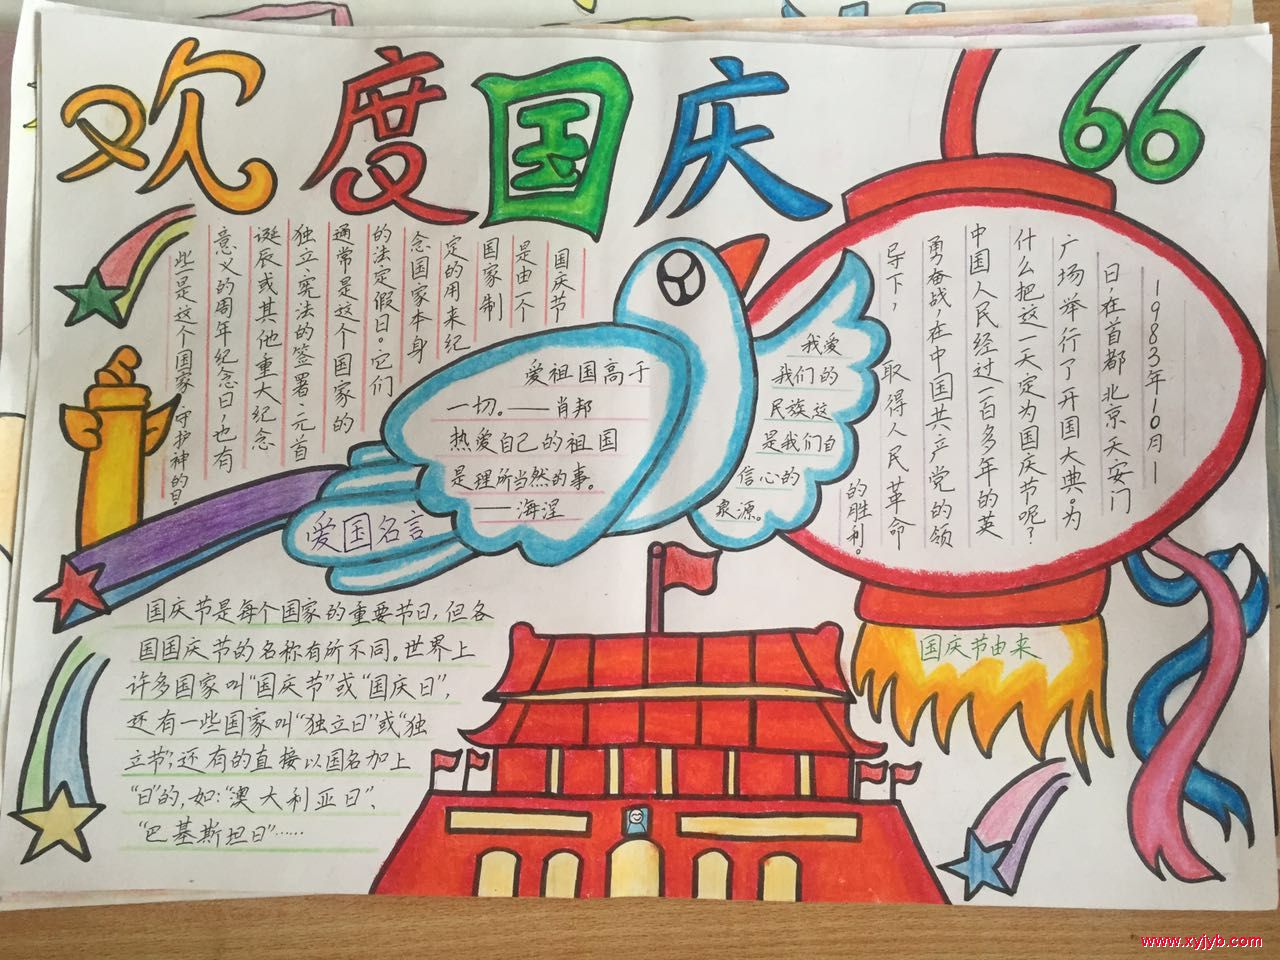 欢度国庆
66
国庆节
是由一个
国家制
定的用来纪
念国家本身
的法定假日。它们
通常是这个国家的
独立、宪法的签署、元首
诞辰或其他重大纪念
意义的周年纪念日,也有
些是这个国家守护神的日。
爱祖国高于
一切。——肖邦
热爱自己的祖国
是理所当然的事。
——海涅
我爱
我们的
民族这
是我们自
信心的
泉源。
爱国名言
1983年10月1
日,在首都北京天安门
广场举行了开国大典。为
什么把这一天定为国庆节呢?
中国人民经过一百多年的英
勇奋战,在中国共产党的领
导下,取得人民革命
的胜利。
国庆节由来
国庆节是每个国家的重要节日,但各
国国庆节的名称有所不同。世界上
许多国家叫“国庆节”或“国庆日”,
还有一些国家叫“独立日”或“独
立节”;还有的直接以国名加上
“日”的,如:“澳大利亚日”、
“巴基斯坦日”……
www.xyjyb.com